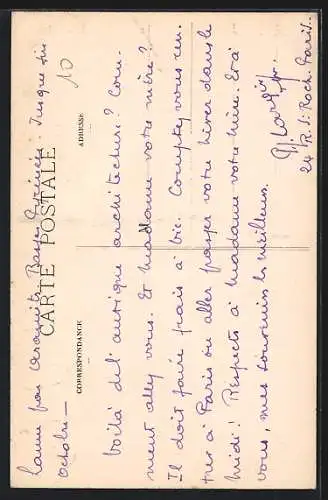 10
CARTE POSTALE
CORRESPONDANCE
ADRESSE
par Basses Pyrénées. Jusque fin
octobre —
Voilà de l'antique architecture? Com-
ment allez vous. Et Madame votre mère?
Il doit faire frais à Vic. Comptez vous ren-
trer à Paris ou aller passer votre hiver dans le
midi! Respects à Madame votre mère. Et à
vous, mes souvenirs les meilleurs.
24 R. St. Roch. Paris.